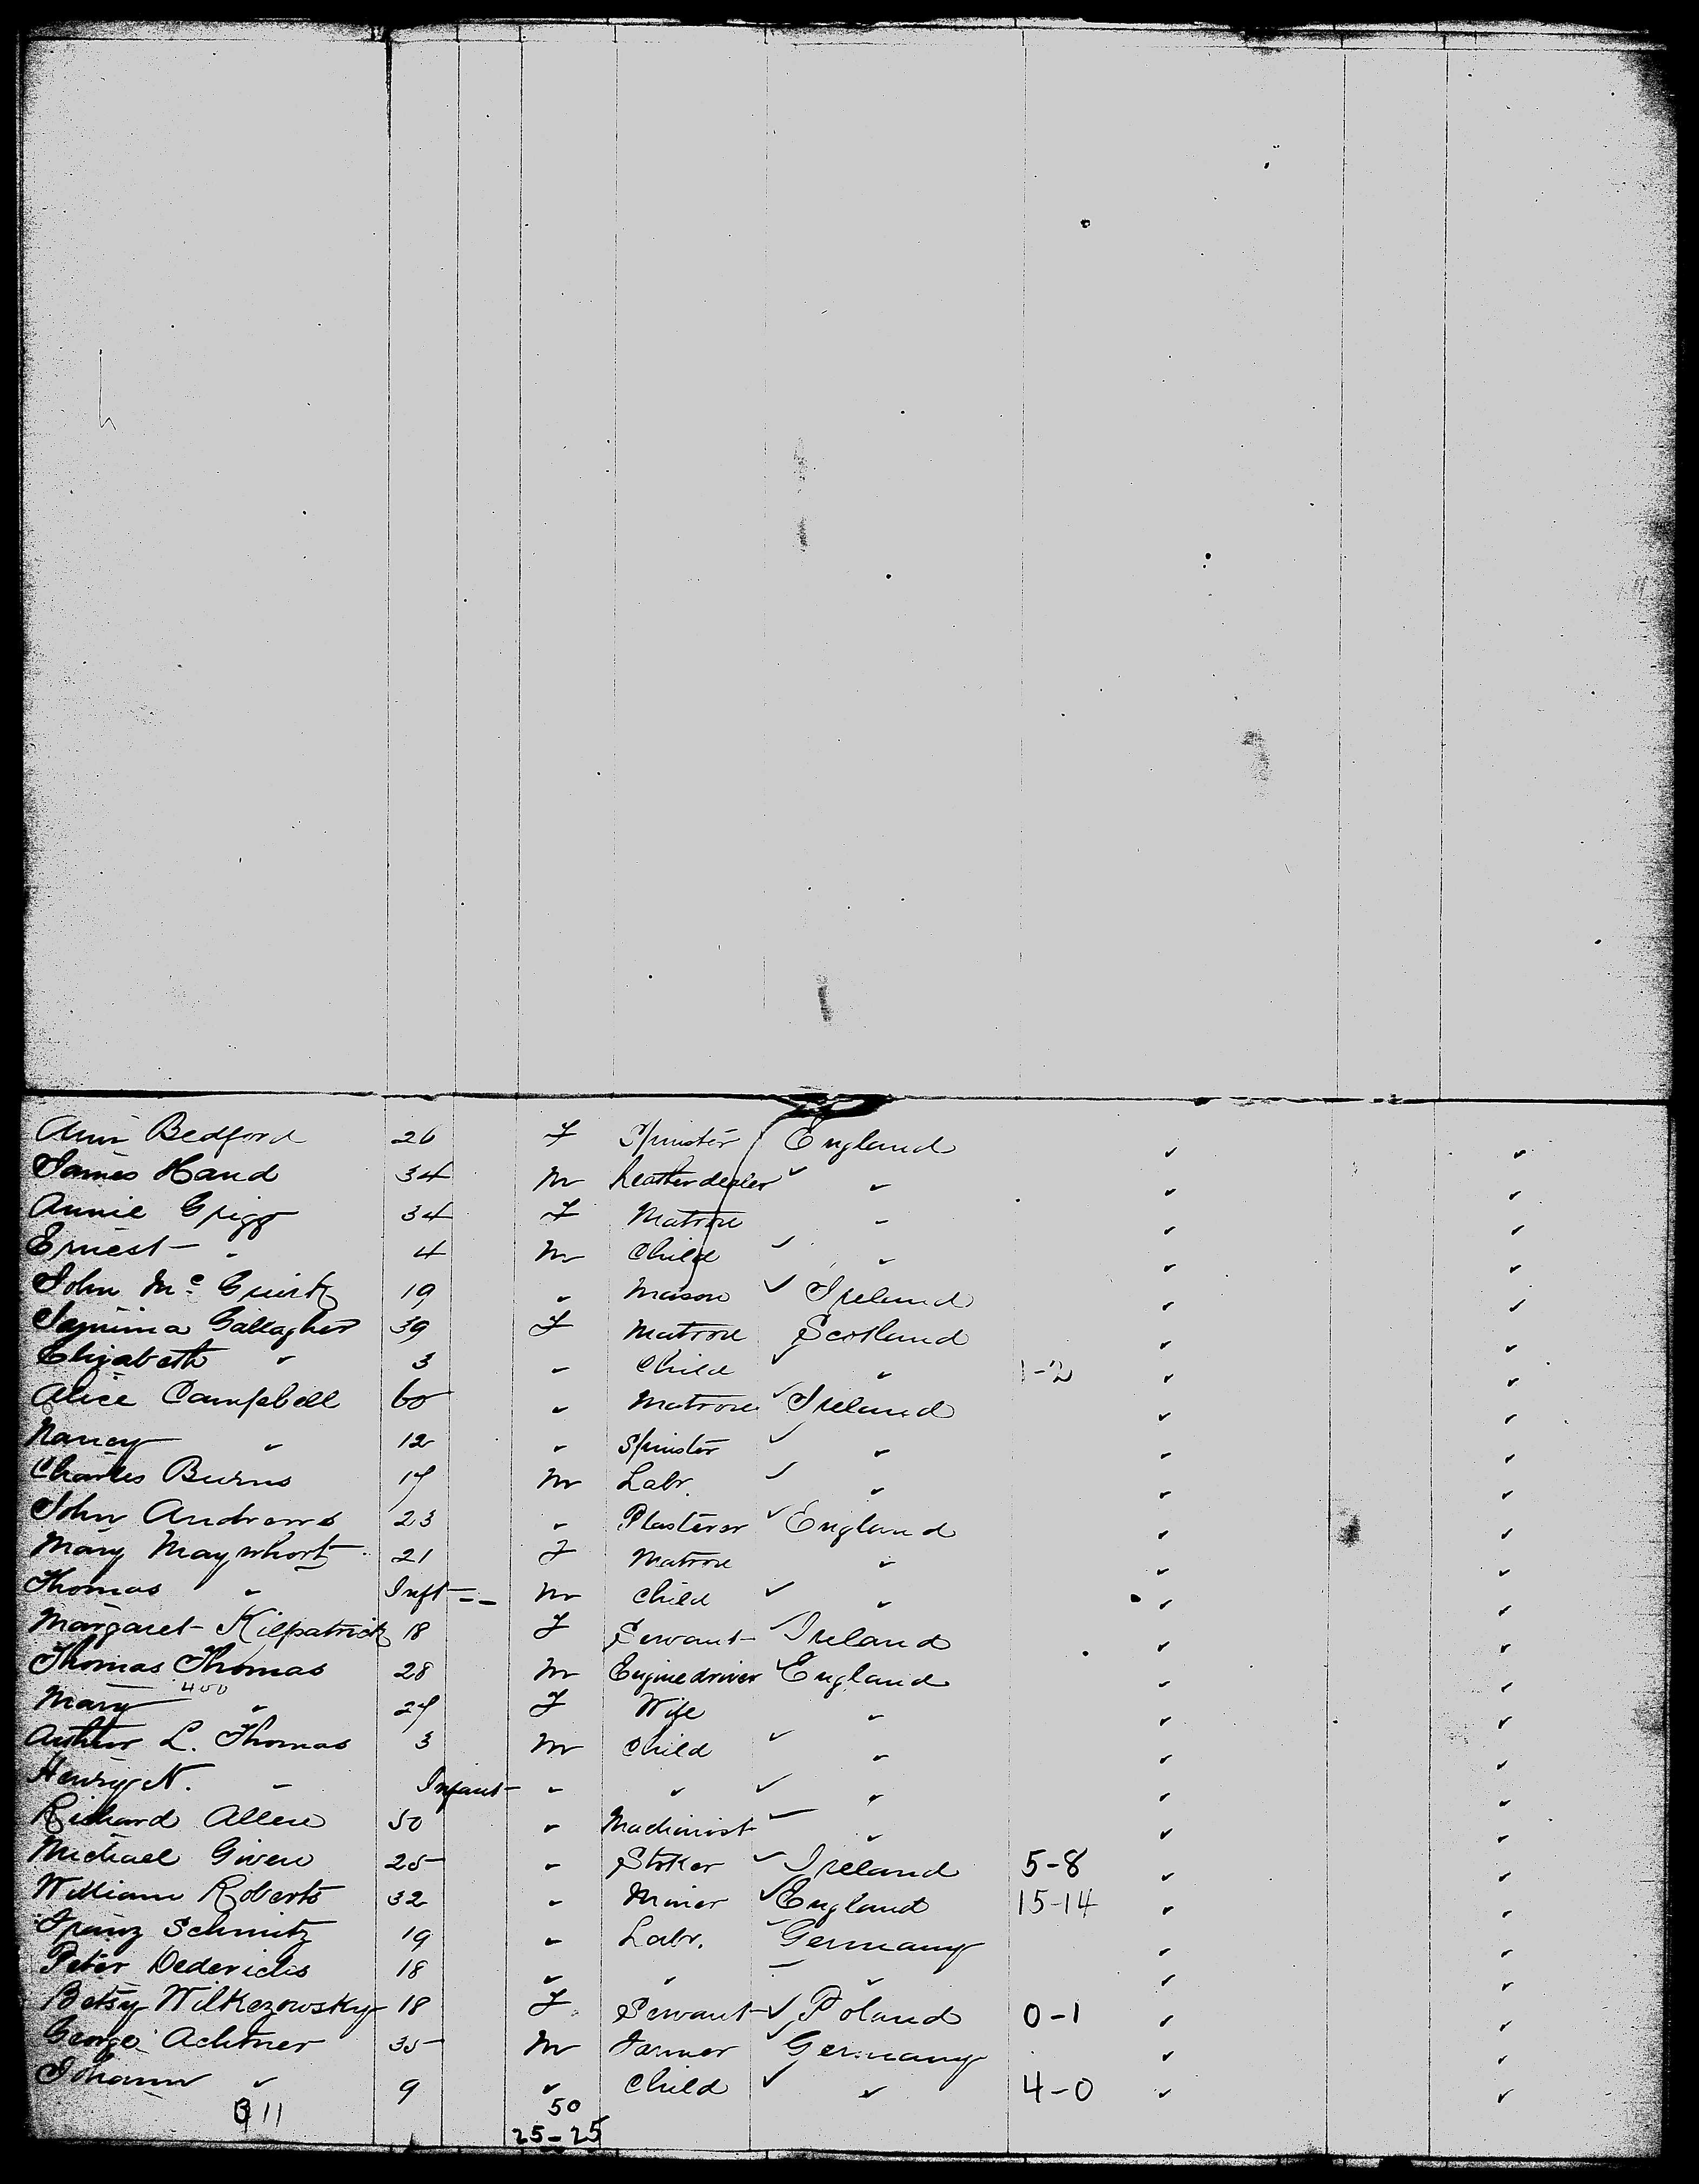 Ann Bedford 26 F Spinster England " "
James Hand 34 M Leather dealer " " "
Annie Grigg 34 F Matron " " "
Ernest " 4 M Child " " "
John McGuirk 19 " Mason Ireland " "
Jemima Gallagher 39 F Matron Scotland " "
Elizabeth " 3 " Child " 1-2 " "
Alice Campbell 60 " Matron Ireland " "
Nancy " 12 " Spinster " " "
Charles Burns 17 M Labr. " " "
John Andrews 23 " Plasterer England " "
Mary Maywhort 21 F Matron " " "
Thomas " Inft -- M Child " " "
Margaret Kilpatrick 18 F Servant Ireland " "
Thomas Thomas 28 M Enginedriver England " "
400
Mary " 27 F Wife " " "
Arthur L. Thomas 3 M Child " " "
Henry N. " Infant " " " " "
Richard Allen 50 " Machinist " " "
Michael Given 25 " Stoker Ireland 5-8 " "
William Roberts 32 " Miner England 15-14 " "
Franz Schmitz 19 " Labr. Germany " "
Peter Dederichs 18 " " " " "
Betsy Wilkezowsky 18 F Servant Poland 0-1 " "
George Achtner 35 M Farmer Germany " "
Johann " 9 " Child " 4-0 " "
311 50
25-25